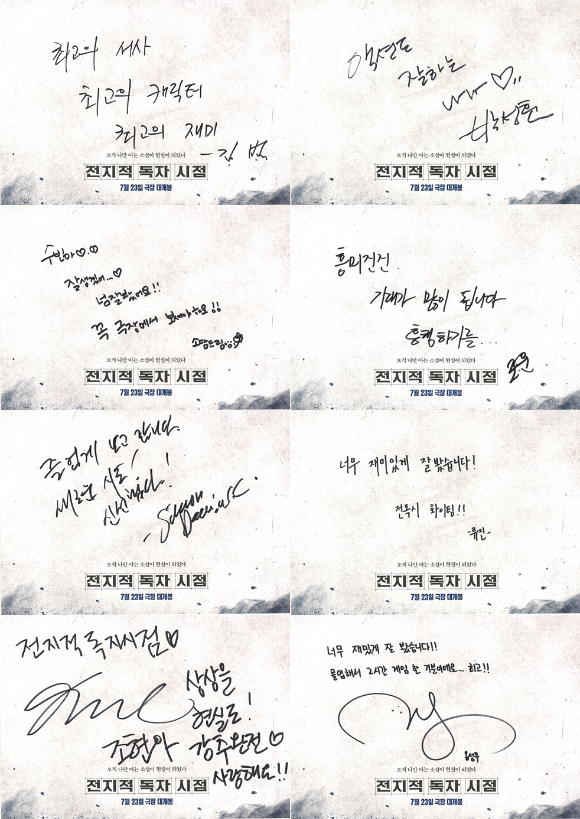 최고의 서사
최고의 캐릭터
최고의 재미
- 김 범
오직 나만 아는 소설이 현실이 되었다
전지적 독자 시점
7월 23일 극장 대개봉
액션도
잘하는
오직 나만 아는 소설이 현실이 되었다
전지적 독자 시점
7월 23일 극장 대개봉
수빈아♡.♡
잘생겼어...♡
넘 잘봤어요!!
꼭 극장에서 봐야해요!!
오직 나만 아는 소설이 현실이 되었다
전지적 독자 시점
7월 23일 극장 대개봉
흥미진진.
기대가 많이 됩니다
흥행하기를...
로운
오직 나만 아는 소설이 현실이 되었다
전지적 독자 시점
7월 23일 극장 대개봉
즐겁게 보고 갑니다.
새로운 시도!
신선했다!
오직 나만 아는 소설이 현실이 되었다
전지적 독자 시점
7월 23일 극장 대개봉
너무 재미있게 잘 봤습니다!
전독시 화이팅!!
-류진-
오직 나만 아는 소설이 현실이 되었다
전지적 독자 시점
7월 23일 극장 대개봉
전지적독자시점♡
상상을
현실로!
조현아 강추완전♡
사랑해요!!
오직 나만 아는 소설이 현실이 되었다
전지적 독자 시점
7월 23일 극장 대개봉
너무 재밌게 잘 봤습니다!!
몰입해서 2시간 게임 한 기분이에요... 최고!!
오직 나만 아는 소설이 현실이 되었다
전지적 독자 시점
7월 23일 극장 대개봉